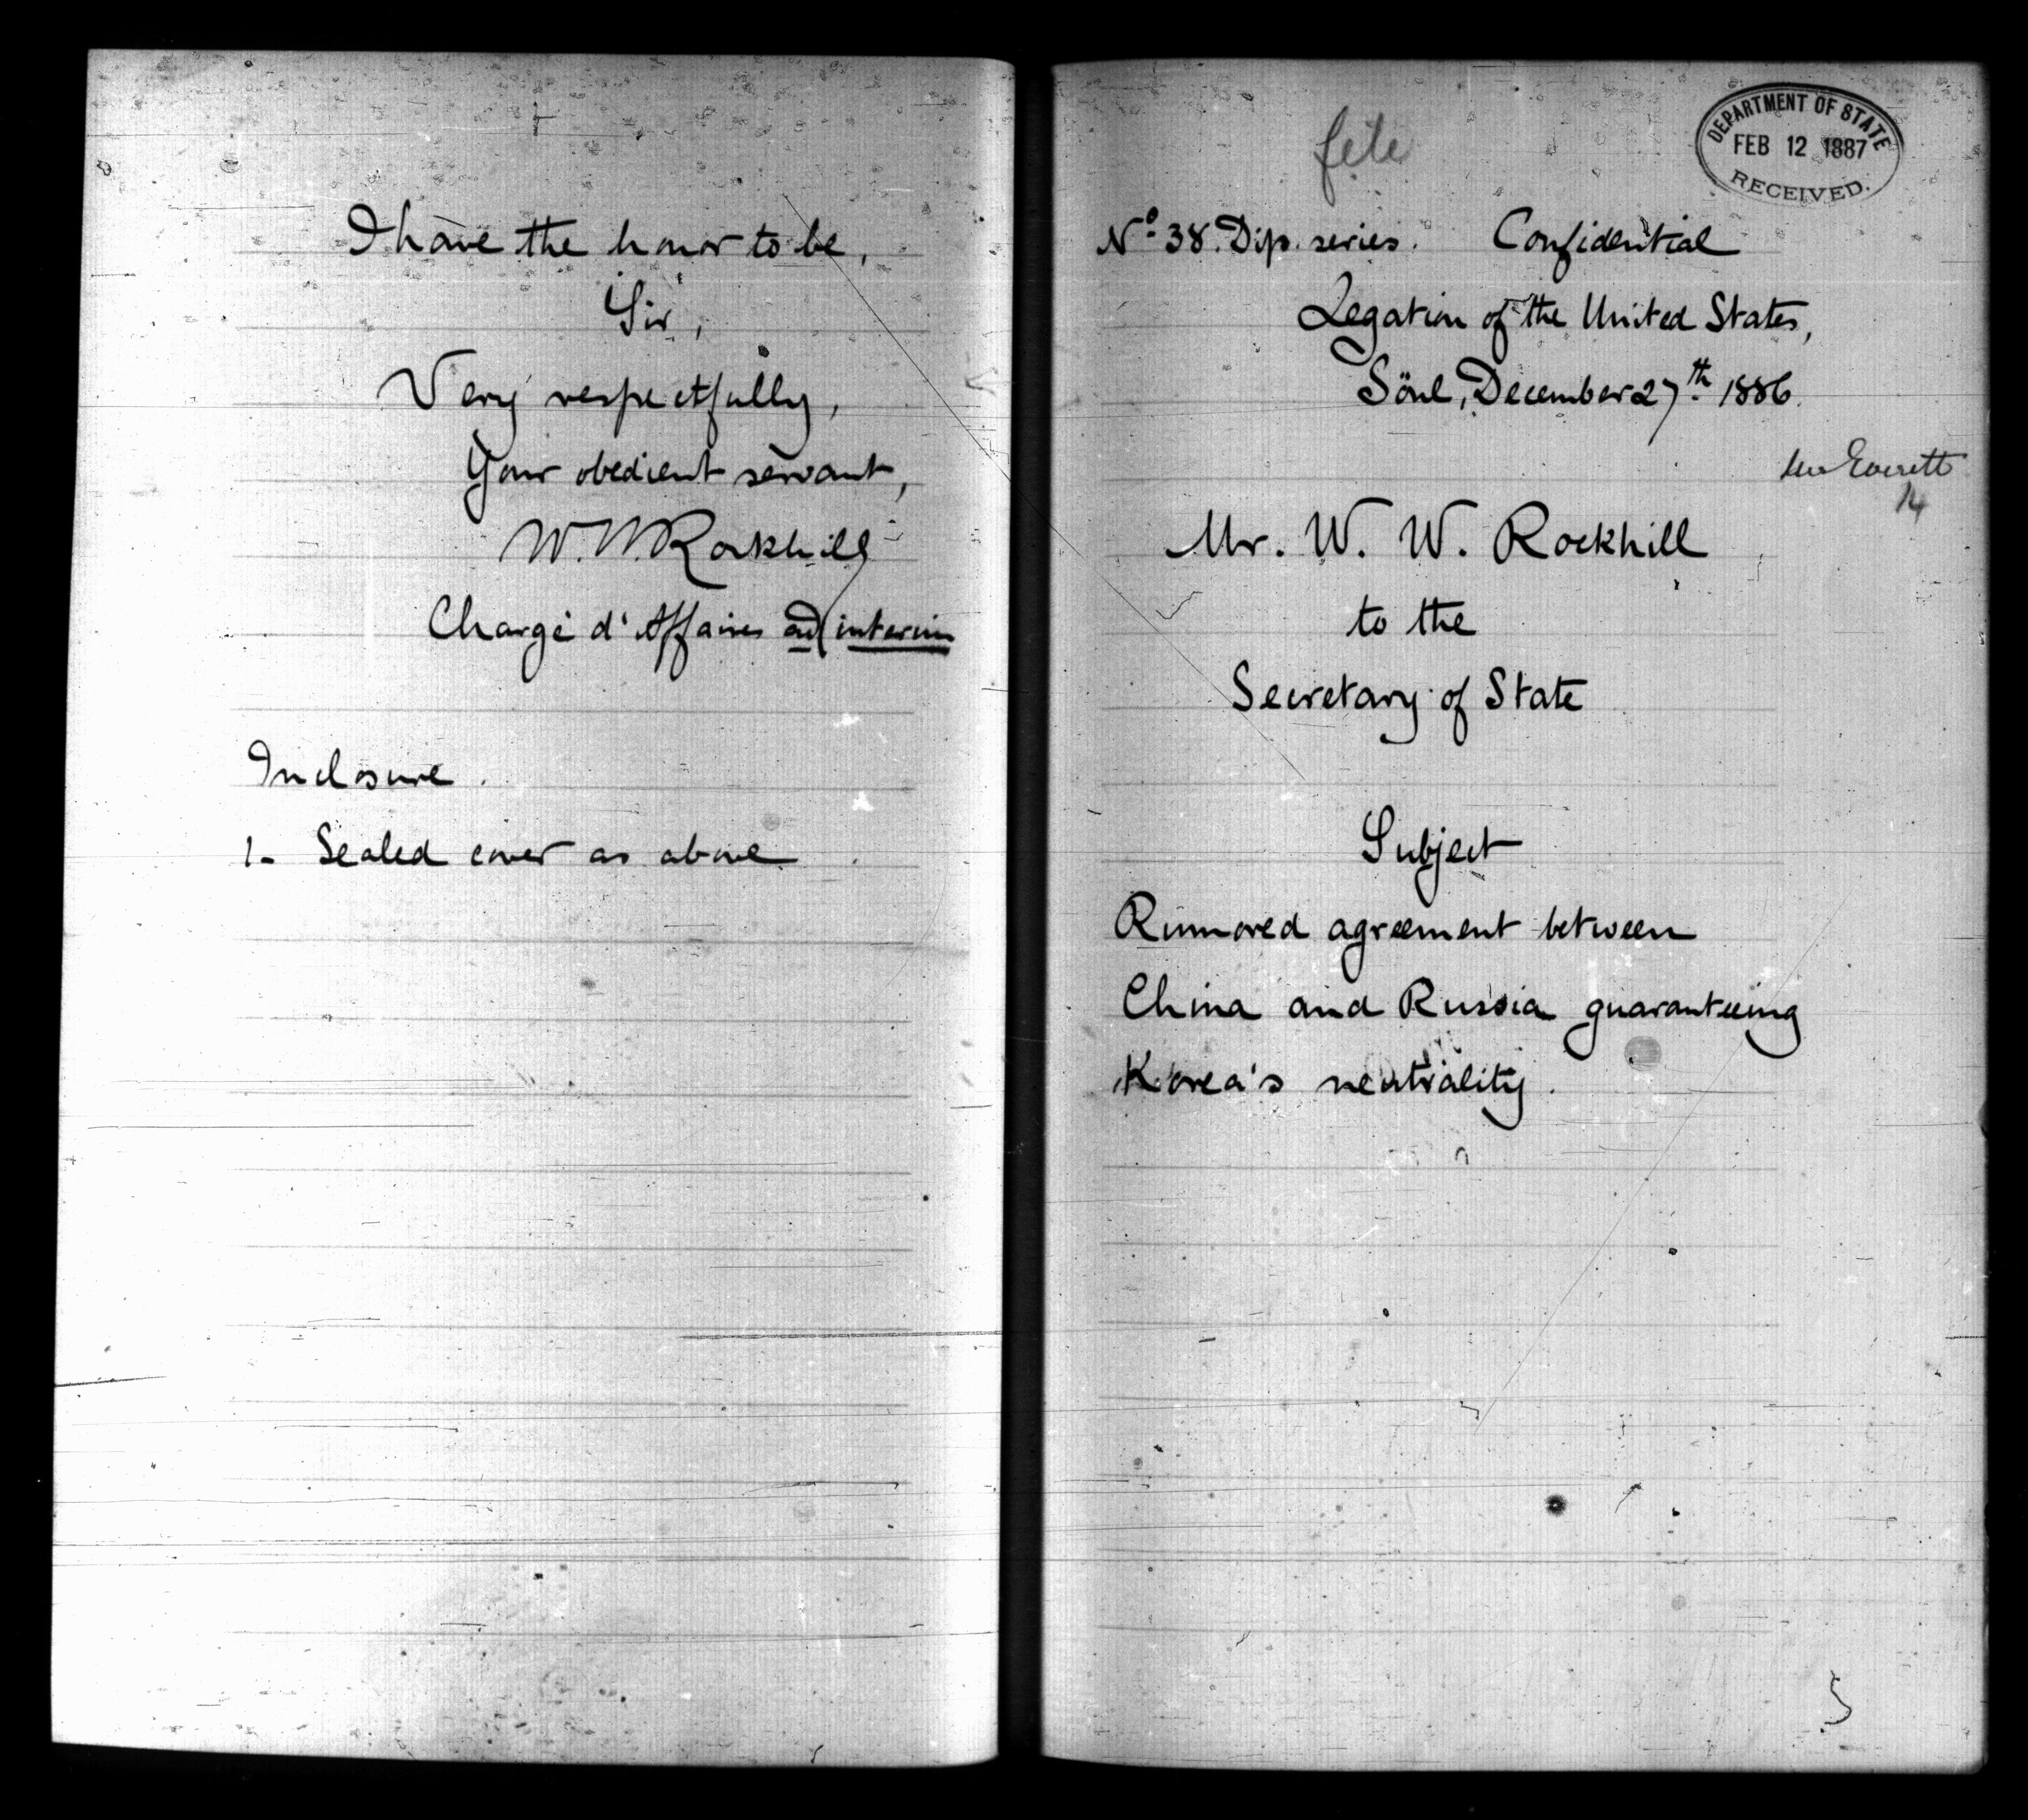 I have the honor to be,
Sir,
Very respectfully,
Your obedient servant,
W. W. Rockhill
Chargé d'Affaires ad interim
Inclosure.
1- Sealed cover as above.
file
DEPARTMENT OF STATE
FEB 12 1887
RECEIVED.
No. 38. Dip. series. Confidential
Legation of the United States,
Söul, December 27th 1886.
Mr Everett
14
Mr. W. W. Rockhill
to the
Secretary of State
Subject
Rumored agreement between
China and Russia guaranteeing
Korea's neutrality.
5